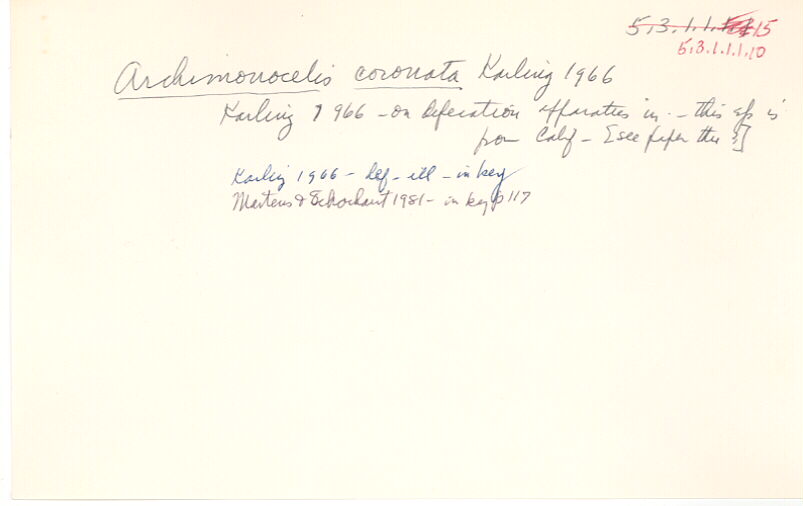 5.3.1.1. 15
5.3.1.1.1.10
Archimonocelis coronata Karling 1966
Karling 1966 - on defecation apparatus in - this sp is
from Calif - [see paper thu ?]
Karling 1966 - def - ill - in key
Martens & Schockaert 1981 - in key p 117